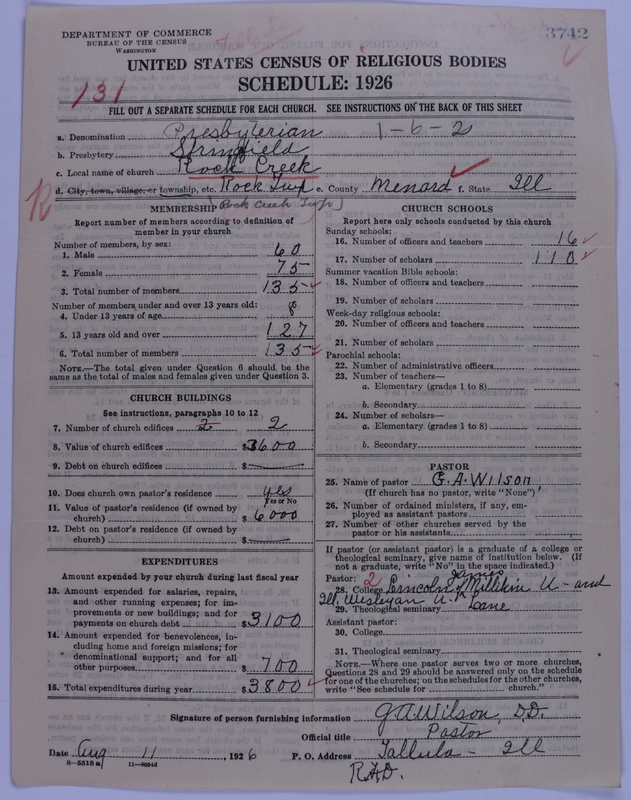 DEPARTMENT OF COMMERCE
BUREAU OF THE CENSUS
WASHINGTON
Tallula
3742
UNITED STATES CENSUS OF RELIGIOUS BODIES
SCHEDULE: 1926
131
FILL OUT A SEPARATE SCHEDULE FOR EACH CHURCH. SEE INSTRUCTIONS ON THE BACK OF THIS SHEET
a. Denomination Presbyterian 1-6-2
b. Presbytery Springfield
c. Local name of church Rock Creek
d. City, town, village, or township, etc. Rock Twp e. County Menard f. State Ill
R
Rock Creek Twp]
MEMBERSHIP
Report number of members according to definition of member in your church
Number of members, by sex:
1. Male 60
2. Female 75
3. Total number of members 135
Number of members under and over 13 years old:
4. Under 13 years of age 8
5. 13 years old and over 127
6. Total number of members 135
NOTE.—The total given under Question 6 should be the same as the total of males and females given under Question 3.
CHURCH BUILDINGS
See instructions, paragraphs 10 to 12
7. Number of church edifices 2 2
8. Value of church edifices $3600
9. Debt on church edifices $
10. Does church own pastor's residence yes
Yes or No
11. Value of pastor's residence (if owned by church) $6000
12. Debt on pastor's residence (if owned by church) $
EXPENDITURES
Amount expended by your church during last fiscal year
13. Amount expended for salaries, repairs, and other running expenses; for improvements or new buildings; and for payments on church debt $3100
14. Amount expended for benevolences, including home and foreign missions; for denominational support; and for all other purposes $700
15. Total expenditures during year $3800
CHURCH SCHOOLS
Report here only schools conducted by this church
Sunday schools:
16. Number of officers and teachers 16
17. Number of scholars 110
Summer vacation Bible schools:
18. Number of officers and teachers
19. Number of scholars
Week-day religious schools:
20. Number of officers and teachers
21. Number of scholars
Parochial schools:
22. Number of administrative officers
23. Number of teachers—
a. Elementary (grades 1 to 8)
b. Secondary
24. Number of scholars—
a. Elementary (grades 1 to 8)
b. Secondary
PASTOR
25. Name of pastor G. A. Wilson
(If church has no pastor, write "None")
26. Number of ordained ministers, if any, employed as assistant pastors
27. Number of other churches served by the pastor or his assistants
If pastor (or assistant pastor) is a graduate of a college or theological seminary, give name of institution below. (If not a graduate, write "No" in the space indicated.)
Pastor: 2 James
28. College Lincoln of Millikin U - and
Ill. Wesleyan U.
29. Theological seminary Lane
Assistant pastor:
30. College
31. Theological seminary
NOTE.—Where one pastor serves two or more churches, Questions 28 and 29 should be answered only on the schedule for one of the churches; on the schedules for the other churches, write "See schedule for church."
Signature of person furnishing information G A Wilson, D.D.
Official title Pastor
Date Aug 11, 1926 P. O. Address Tallula - Ill
8-5518 a